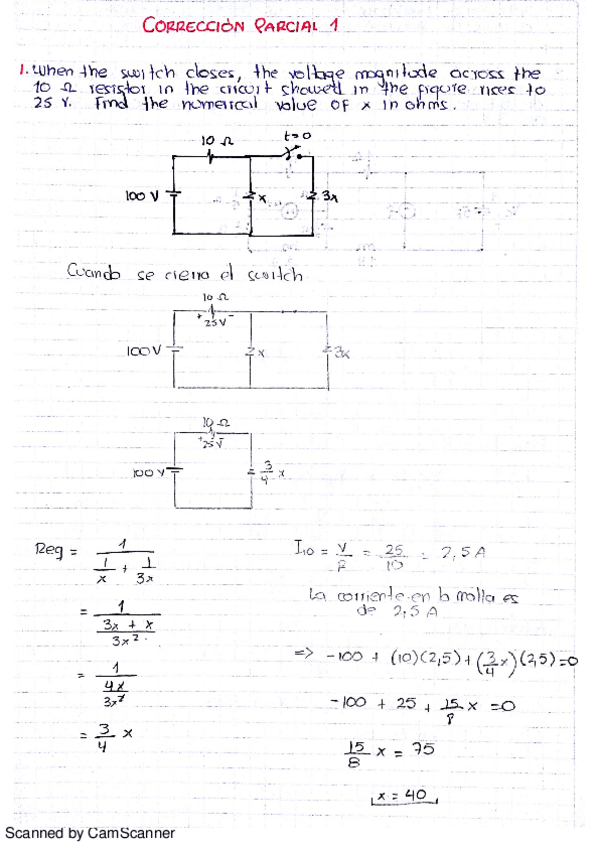 CORRECCIÓN PARCIAL 1
1. When the switch closes, the voltage magnitude across the
10 Ω resistor in the circuit showed in the figure rises to
25 V. Find the numerical value of x in ohms.
10 Ω
t=0
100 V
x
3x
Cuando se cierra el switch
10 Ω
+ 25V -
100V
x
3x
10 Ω
+ 25V -
100 V
3/4 x
Req = 1 / (1/x + 1/3x)
= 1 / ((3x + x)/3x²)
= 1 / (4x/3x²)
= 3/4 x
I10 = V/R = 25/10 = 2,5 A
La corriente en la malla es
de 2,5 A
=> -100 + (10)(2,5) + (3/4 x)(2,5) = 0
-100 + 25 + 15/8 x = 0
15/8 x = 75
x = 40
Scanned by CamScanner